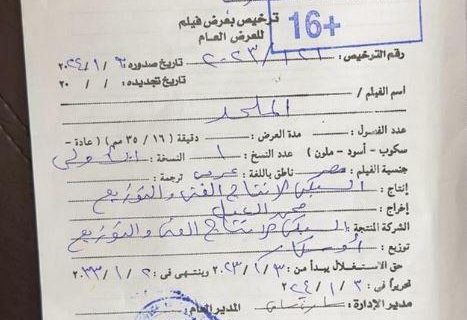 ترخيص بعرض فيلم
للعرض العام
16+
رقم الترخيص : ٢٠٢٣/١٢١ تاريخ صدوره ٦ / ١ / ٢٠٢٤
تاريخ تجديده : / / ٢٠
اسم الفيلم / الملحد
عدد الفصول : مدة العرض : دقيقة ( ١٦ / ٣٥ سم ) عادة -
سكوب - أسود - ملون ) عدد النسخ : ١ النسخة :
جنسية الفيلم : مصر ناطق باللغة : عربى ترجمة :
إنتاج : السبكى للإنتاج الفنى والتوزيع
إخراج : محمد العدل
الشركة المنتجة : السبكى للإنتاج الفنى والتوزيع
توزيع : أوسكار
حق الاستغلال يبدأ من : ٣ / ١ / ٢٠٢٣ وينتهى فى : ٢ / ١ / ٢٠٣٣
تحريرًا فى ٣ / ١ / ٢٠٢٤
مدير الإدارة : المدير العام :